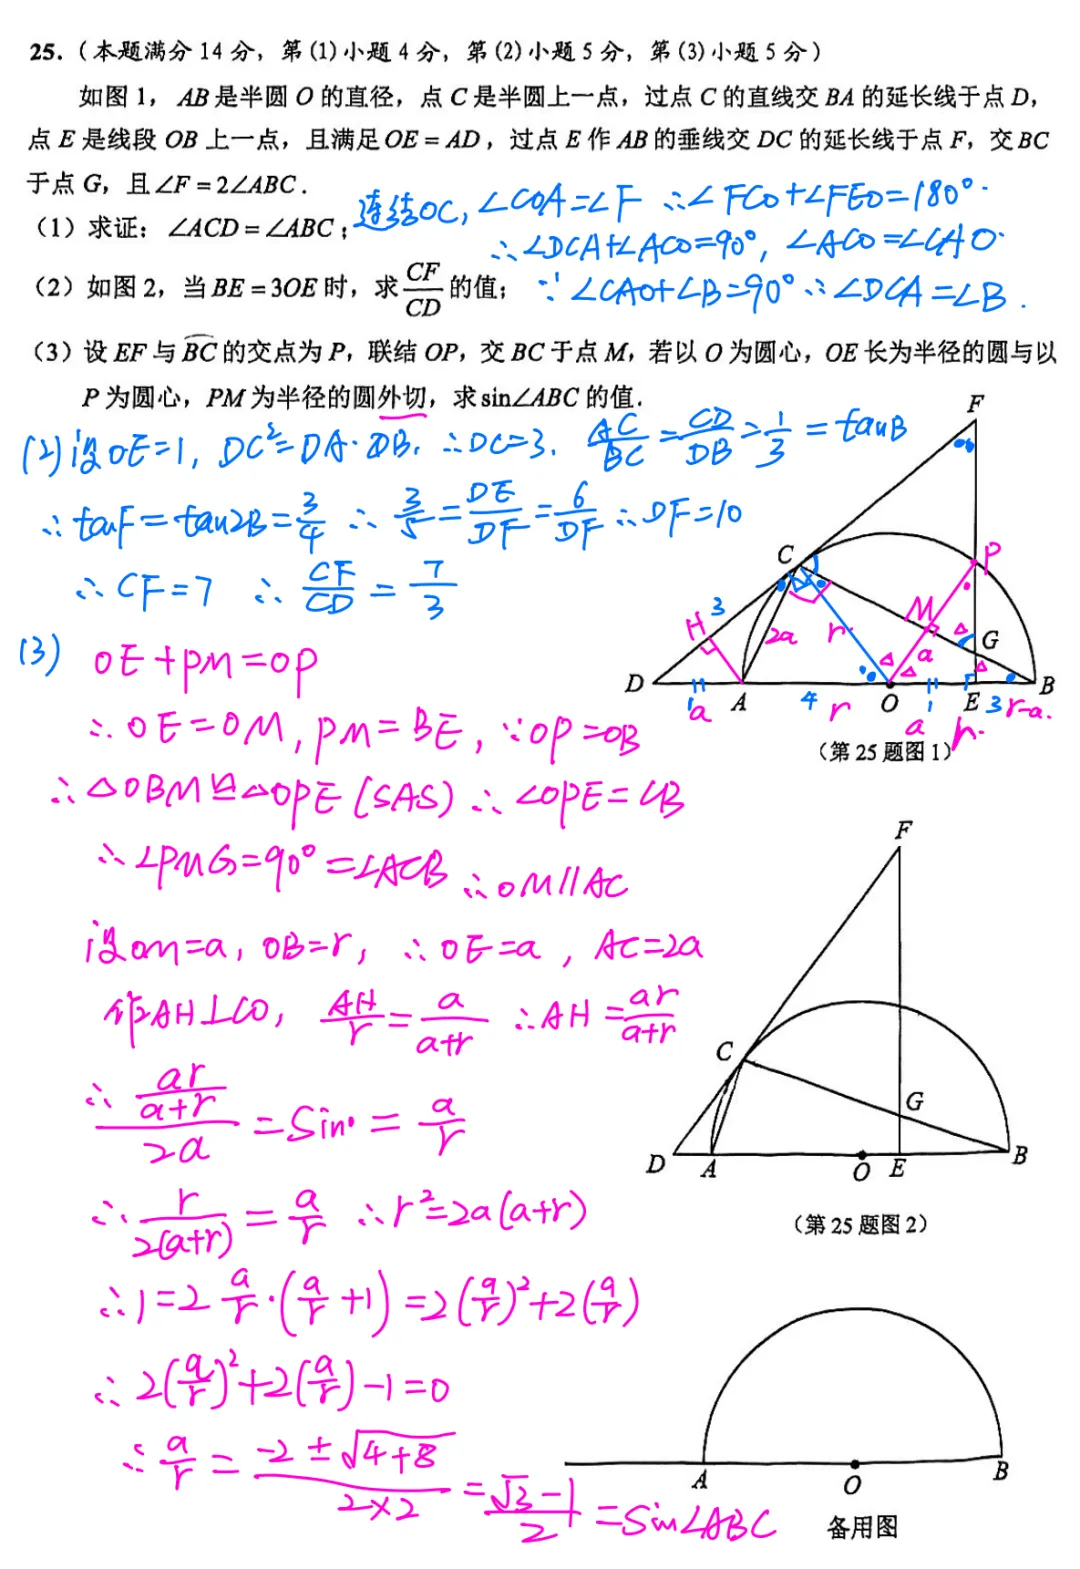 25.（本题满分 14 分，第(1)小题 4 分，第(2)小题 5 分，第(3)小题 5 分）
如图 1，AB 是半圆 O 的直径，点 C 是半圆上一点，过点 C 的直线交 BA 的延长线于点 D，
点 E 是线段 OB 上一点，且满足 OE = AD，过点 E 作 AB 的垂线交 DC 的延长线于点 F，交 BC
于点 G，且∠F = 2∠ABC．
（1）求证：∠ACD = ∠ABC；
连结OC, ∠COA=∠F ∴∠FCO+∠FEO=180°.
∴∠DCA+∠ACO=90°, ∠ACO=∠CAO.
（2）如图 2，当 BE = 3OE 时，求 CF/CD 的值；
∵∠CAO+∠B=90° ∴∠DCA=∠B.
（3）设 EF 与 BC 的交点为 P，联结 OP，交 BC 于点 M，若以 O 为圆心，OE 长为半径的圆与以
P 为圆心，PM 为半径的圆外切，求 sin∠ABC 的值．
(2)设OE=1, DC²=DA·DB, ∴DC=3. AC/BC=CD/DB=1/3=tanB
∴tanF=tan2B=3/4 ∴3/5=DE/DF=6/DF ∴DF=10
∴CF=7 ∴CF/CD=7/3
(3) OE+PM=OP
∴OE=OM, PM=BE, ∵OP=OB
∴△OBM≌△OPE(SAS) ∴∠OPE=∠B
∴∠PMG=90°=∠ACB ∴OM//AC
设OM=a, OB=r, ∴OE=a, AC=2a
作AH⊥CD, AH/r=a/(a+r) ∴AH=ar/(a+r)
∴(ar/(a+r))/2a=Sin·=a/r
∴r/2(a+r)=a/r ∴r²=2a(a+r)
∴1=2a/r·(a/r+1)=2(a/r)²+2(a/r)
∴2(a/r)²+2(a/r)-1=0
∴a/r=(-2±√4+8)/2×2=(√3-1)/2=Sin∠ABC
F
C
P
H
3
2a
r
M
a
G
D
A
O
E
B
a
1
4
r
a
1
3
r-a.
h.
（第 25 题图 1）
F
C
G
D
A
O
E
B
（第 25 题图 2）
A
O
B
备用图